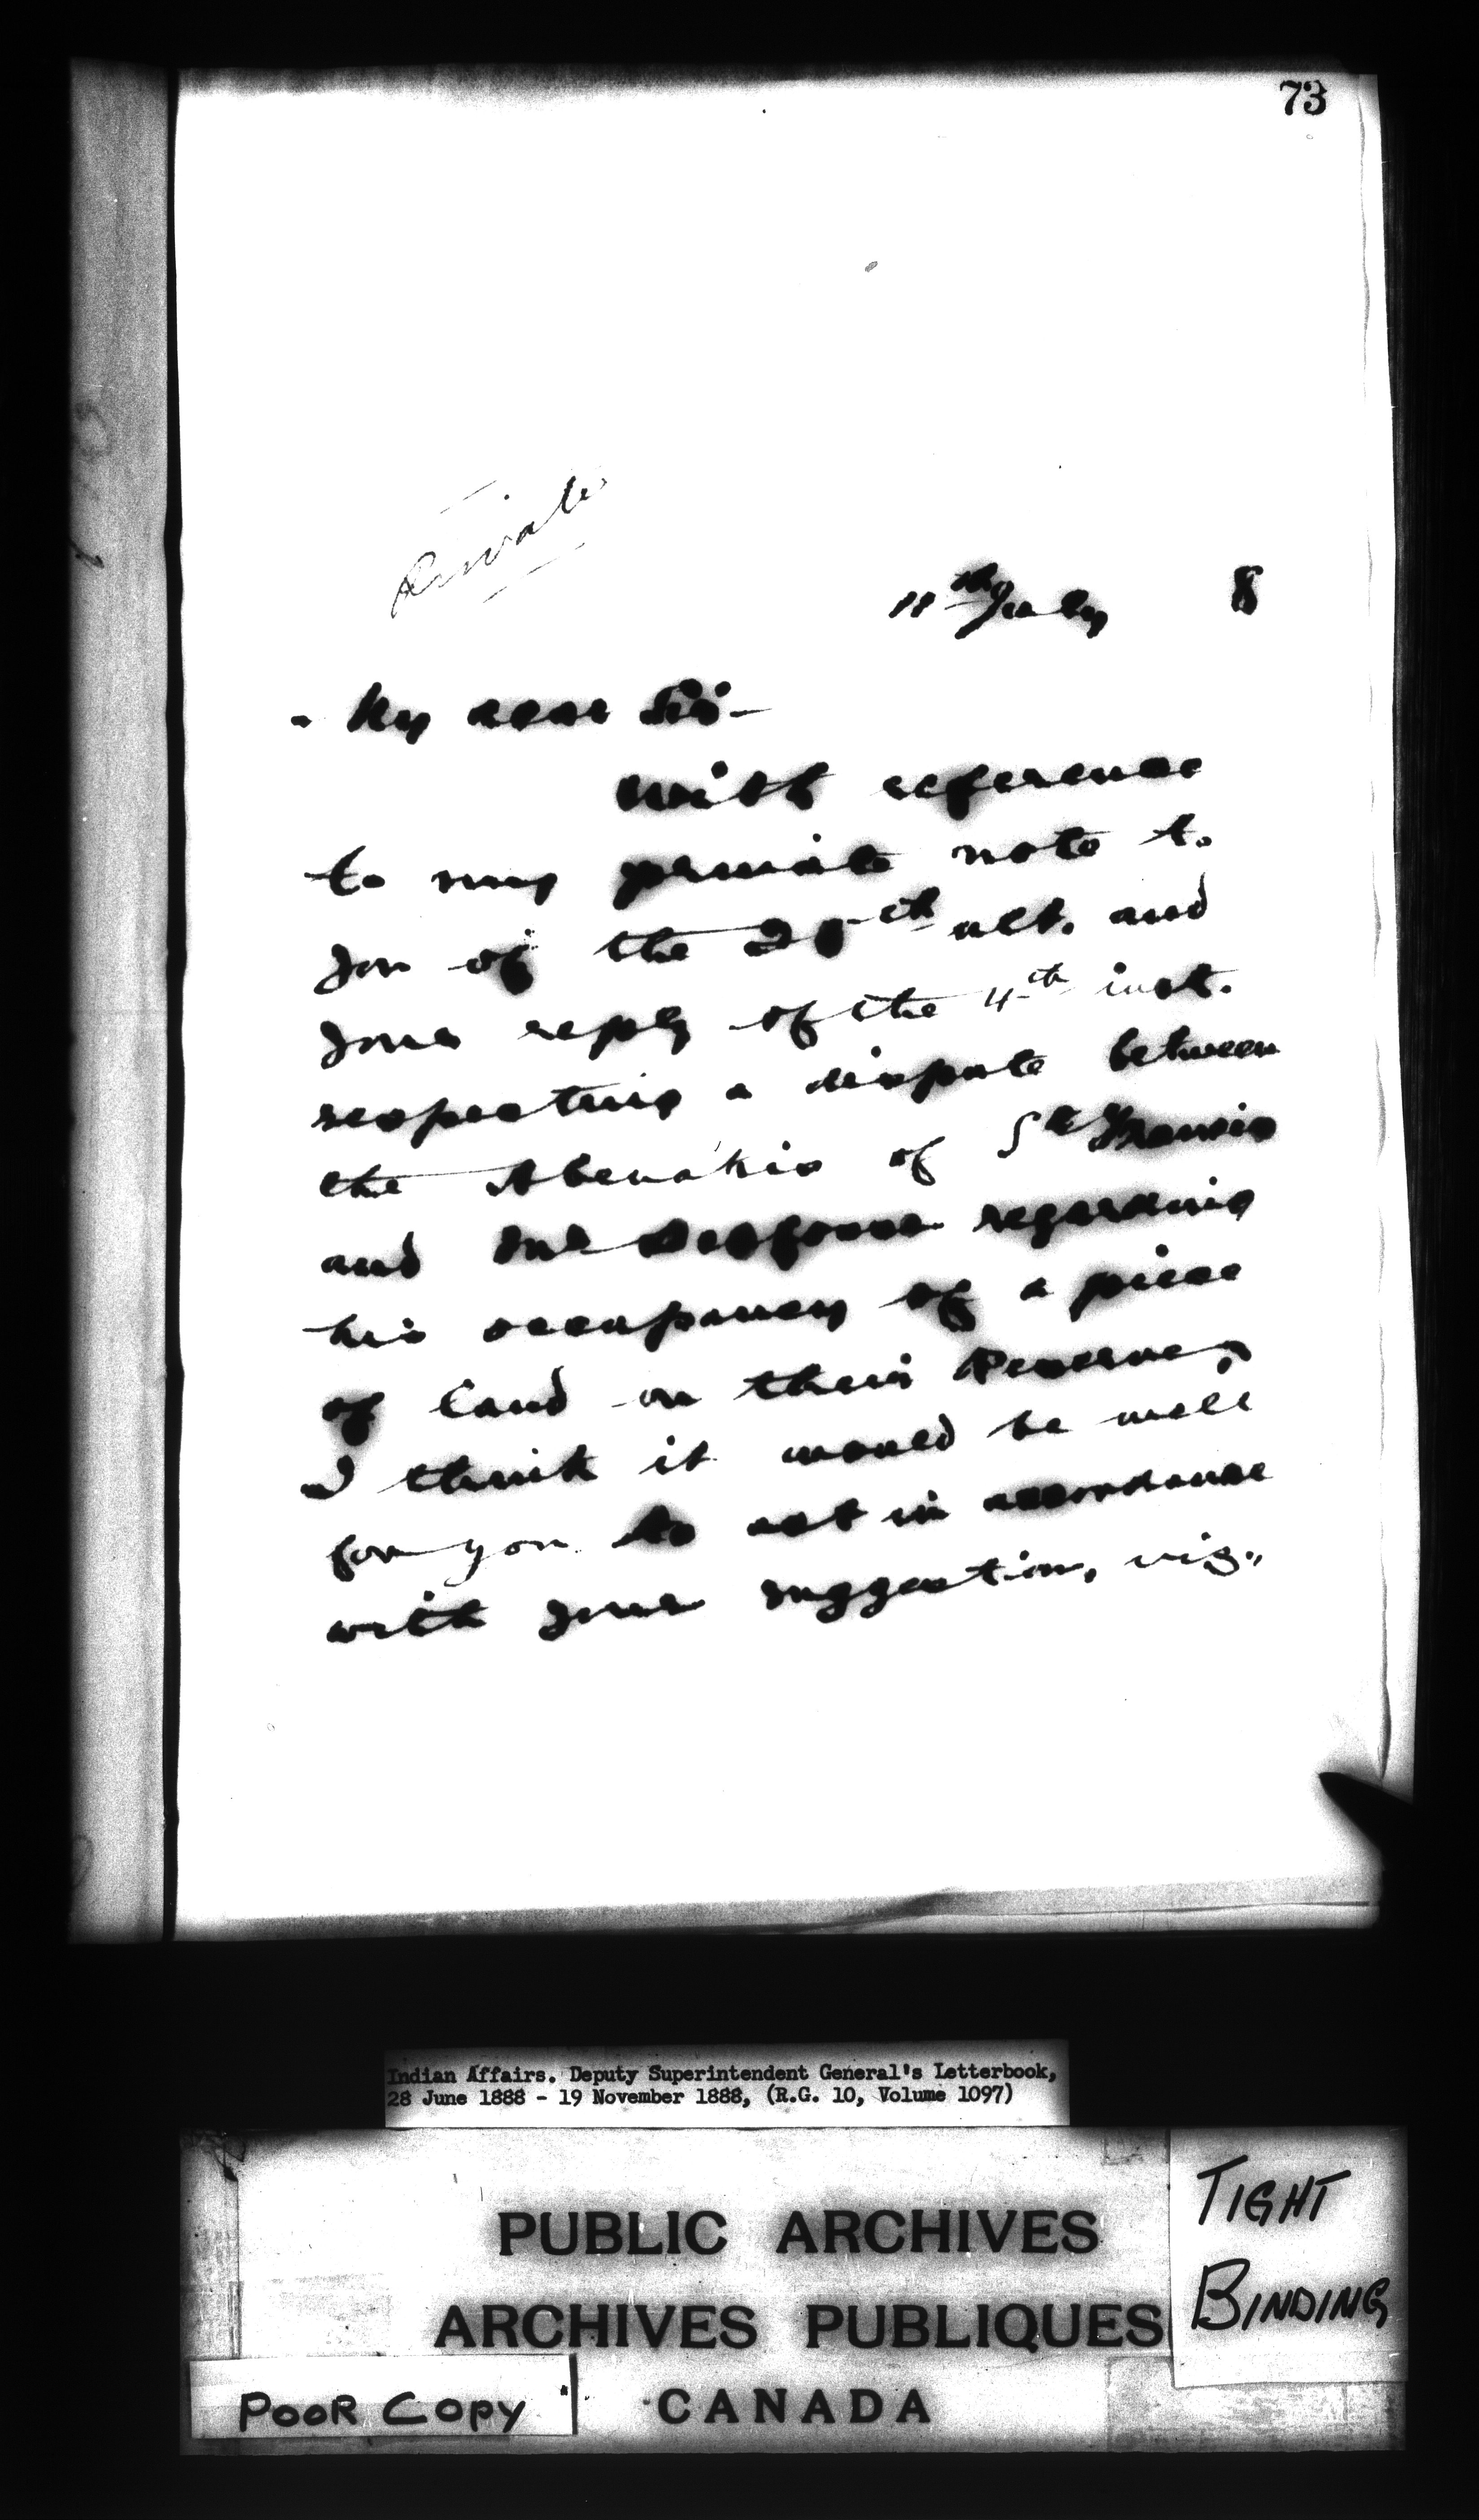 73
Private
11th July 8
My dear Sir -
With reference
to my private note to
you of the 28th ult. and
your reply of the 4th inst.
respecting a dispute between
the Abenakis of St Francis
and regarding
his occupancy of a piece
of land on their Reserve,
I think it would be well
for you to act in accordance
with your suggestion, viz.,
Indian Affairs. Deputy Superintendent General's Letterbook,
28 June 1888 - 19 November 1888, (R.G. 10, Volume 1097)
PUBLIC ARCHIVES
ARCHIVES PUBLIQUES
CANADA
TIGHT
BINDING
POOR COPY